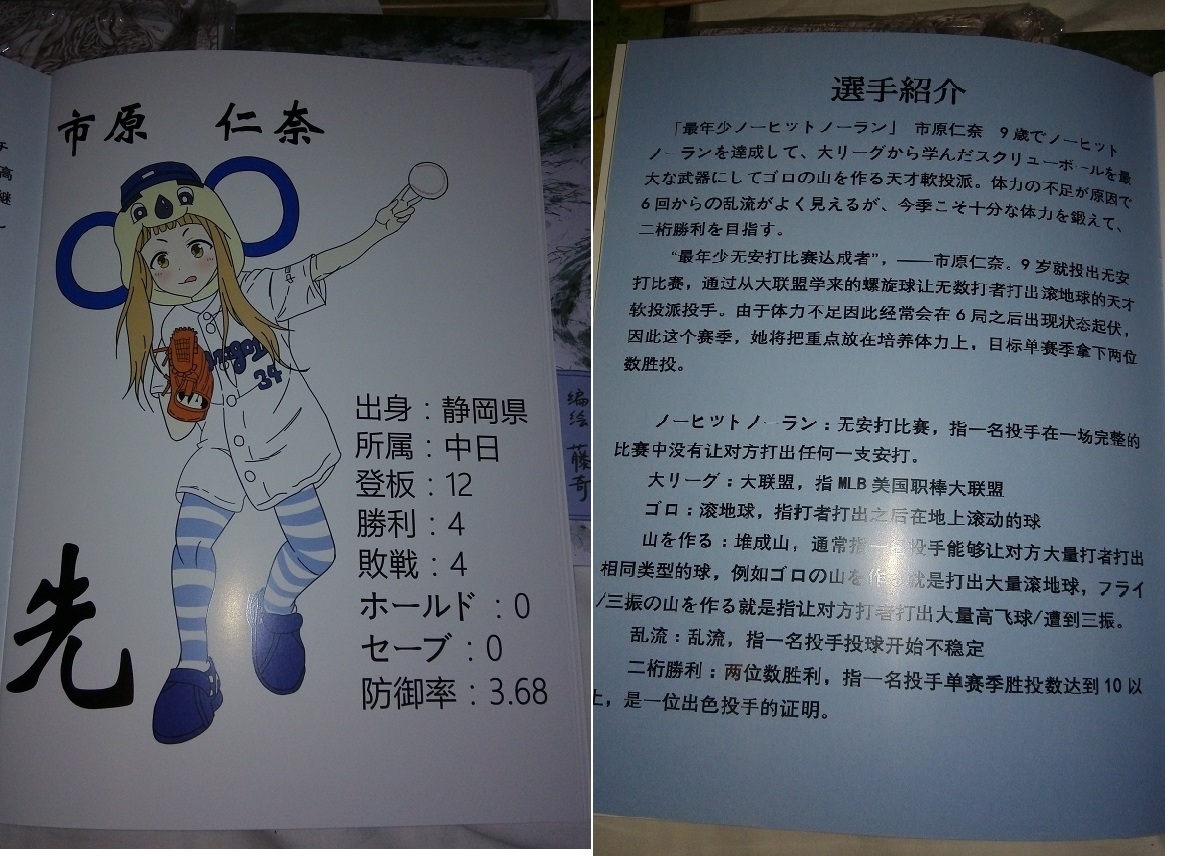 チ
高
継
市原 仁奈
34
出身：静岡県
所属：中日
登板：12
勝利：4
敗戦：4
ホールド：0
セーブ：0
防御率：3.68
先
編
绘
藤
奇
選手紹介
「最年少ノーヒットノーラン」 市原仁奈 9歳でノーヒット
ノーランを達成して、大リーグから学んだスクリューボールを最
大な武器にしてゴロの山を作る天才軟投派。体力の不足が原因で
6回からの乱流がよく見えるが、今季こそ十分な体力を鍛えて、
二桁勝利を目指す。
“最年少无安打比赛达成者”，——市原仁奈。9岁就投出无安
打比赛，通过从大联盟学来的螺旋球让无数打者打出滚地球的天才
软投派投手。由于体力不足因此经常会在6局之后出现状态起伏，
因此这个赛季，她将把重点放在培养体力上，目标单赛季拿下两位
数胜投。
ノーヒットノーラン：无安打比赛，指一名投手在一场完整的
比赛中没有让对方打出任何一支安打。
大リーグ：大联盟，指MLB美国职棒大联盟
ゴロ：滚地球，指打者打出之后在地上滚动的球
山を作る：堆成山，通常指一名投手能够让对方大量打者打出
相同类型的球，例如ゴロの山を作る就是打出大量滚地球，フライ
/三振の山を作る就是指让对方打者打出大量高飞球/遭到三振。
乱流：乱流，指一名投手投球开始不稳定
二桁勝利：两位数胜利，指一名投手单赛季胜投数达到10以
上，是一位出色投手的证明。